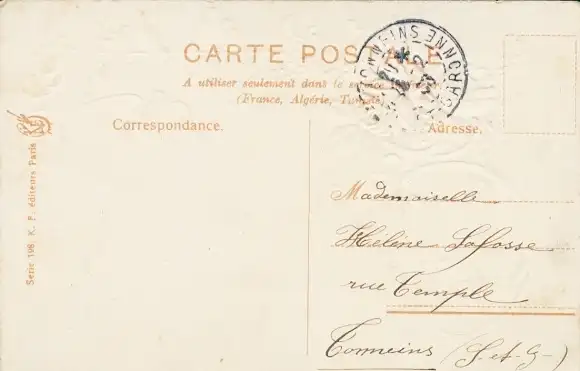 CARTE POSTALE
A utiliser seulement dans le service
(France, Algérie, Tunisie)
Correspondance.
Adresse.
Mademoiselle
Hélène Lafosse
rue Temple
Tonneins (L.-et-G-)
Serie 198 K. F. éditeurs Paris